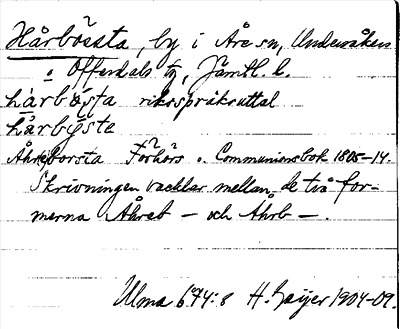 Hårbörsta, by i Åre sn, Undersåkers
o. Offerdals tg, Jämtl. l.
hårbösta riksspråksuttal
hårbÿste
Åhreborsta Förhörs o. Communionsbok 1805-14.
Skrivningen vacklar mellan de två for-
merna Åhreb - och Åhrb -.
Ulma 674:8 H. Geijer 1904-09.